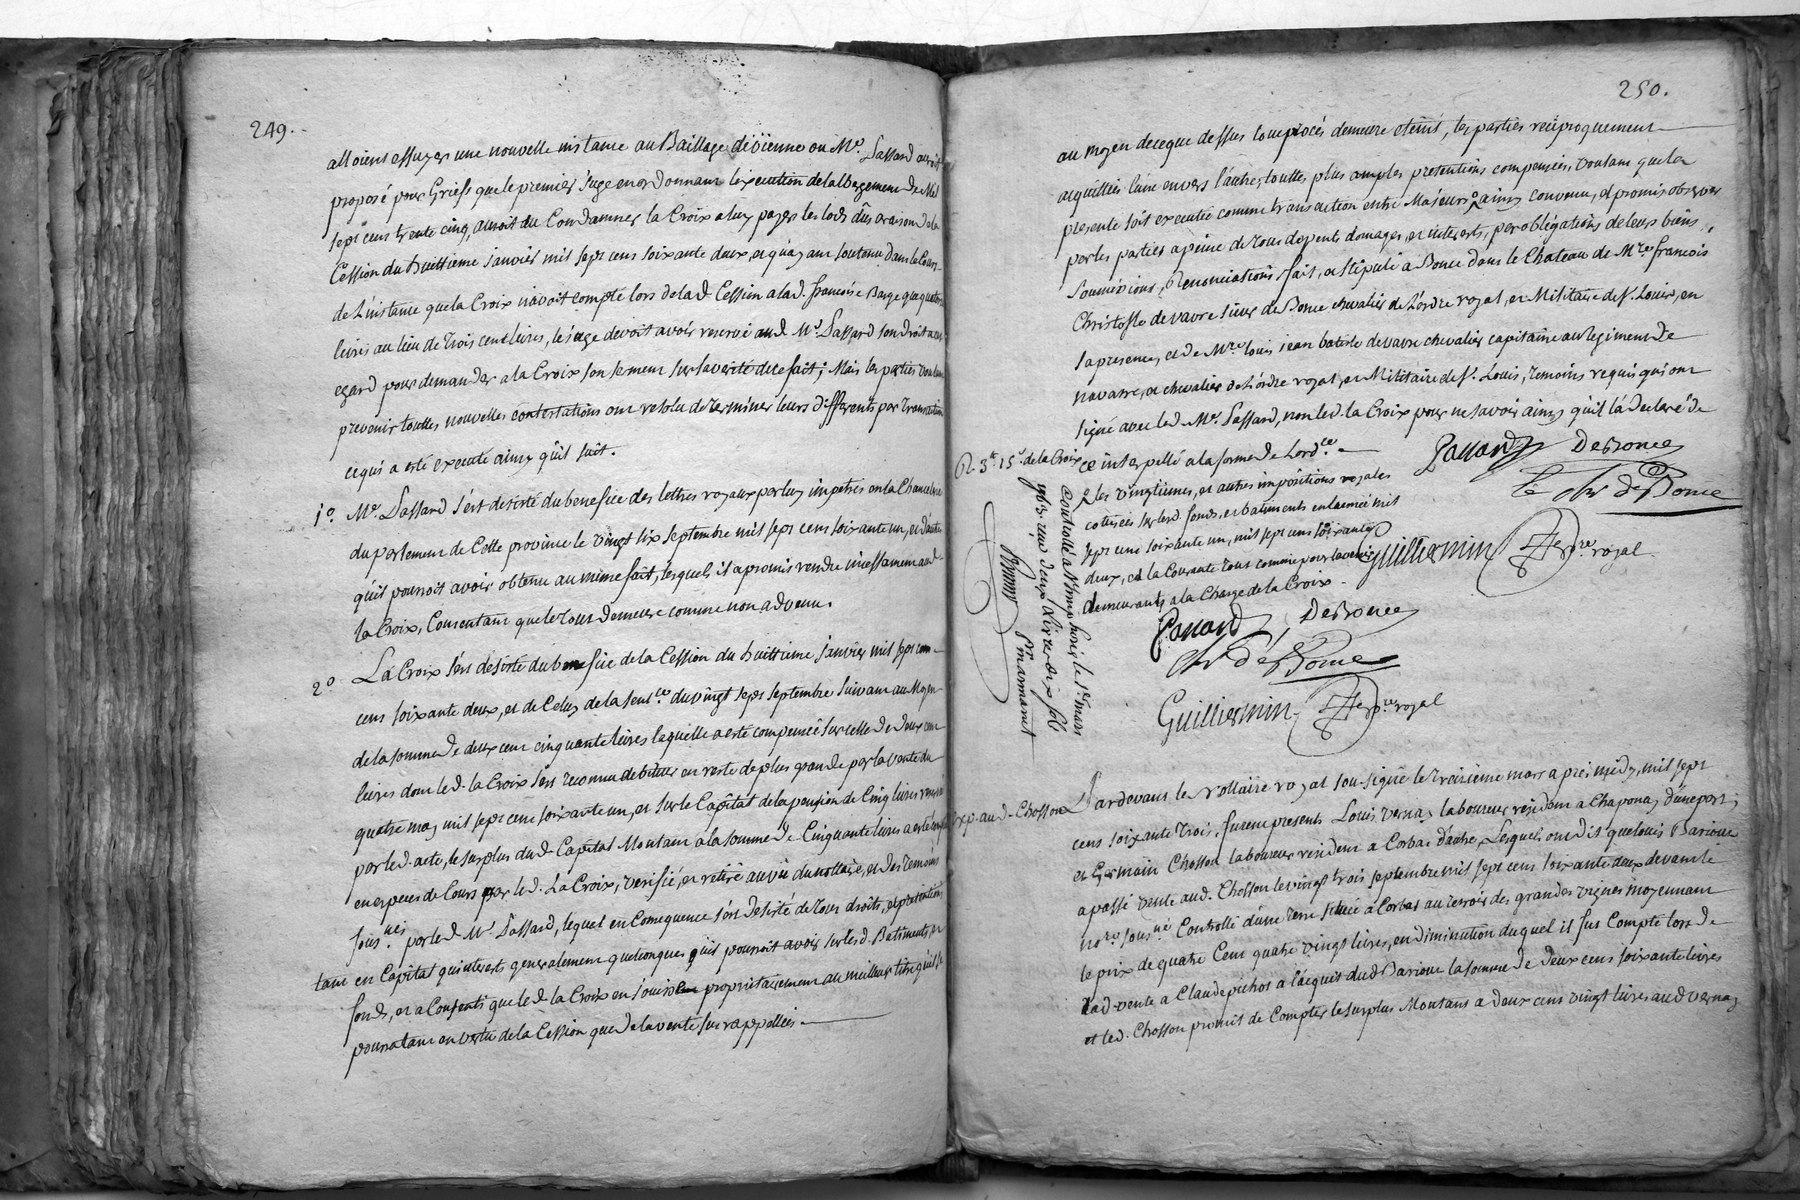 249.
alloient essuyer une nouvelle instance au Baillage de vienne ou Me. Passard auroit
proposé pour Griefs que le premier Juge en ordonnant l'exécution de l'albergement de Mil
sept cens trente cinq, auroit du Condamner la Croix a luy payer les lods dûs a raison de la
Cession du huittieme janvier mil sept cens soixante deux, et qu'ayant soutenu dans le Cours
de L'instance que la Croix n'avoit compté lors de lad. Cession a lad. françoise Barge que quatre
livres au lieu de Trois cent livres, le juge devoit avoir reservé aud. Me. Passard son droit a cet
egard pour demander a la Croix son serment sur la verité de ce fait; Mais les parties voulant
prevenir touttes nouvelles contestations ont resolu de terminer leurs differents par Transaction
ce qui a esté executé ainsy qu'il suit.
1o. Me. Passard s'est desisté du benefice des lettres royaux par luy impetrés en la Chancelerie
du parlement de Cette province le vingt six septembre mil sept cens soixante un, et d'autres
qu'il pourroit avoir obtenu au même fait, lesquels il a promis rendre incessamment aud.
la Croix, Consentant que le tout demeure comme non advenu.
2o. La Croix s'est desisté du benefice de la Cession du huittieme janvier mil sept cent
cens soixante deux, et de Celuy de la sentce. du vingt sept septembre suivant au Moyen
de la somme de deux cent cinquante livres laquelle a esté compensée sur celle de deux cent
livres dont led. la Croix s'est reconnu debiteur en reste de plus grande par la vente du
quatre may mil sept cent soixante un, et sur le Capital de la pension de Cinq livres
par led. acte, le surplus dud. Capital Montant a la somme de Cinquante livres a esté
en especes de Cours par led. La Croix, verifié, et retiré au vû du nottaire, et des temoins
sousnés. par led. Me. Passard, lequel en Consequence s'est desisté de tous droits, et pretentions
tant en Capital qu'interets generalement quelconques qu'il pourroit avoir sur lesd. Batiments, et
fonds, et a Consenti que led. la Croix en jouisse proprietairement au meilleur titre qu'il le
pourra tant en vertu de la Cession que de la vente sus rappellées.
250.
au moyen de ce que dessus tout procés demeure eteint, les parties reciproquement
acquittées l'une envers l'autre, touttes plus amples pretentions compensées, voulant que la
presente soit executée comme transaction entre Majeurs ainsy convenu, et promis observer
par les parties a peine de tous depents domages, et interests, par obligations de leurs biens,
soumissions, Renonciations fait, et stipulé a Bonce dans le Chateau de Mre. françois
Christofle de vavre sieur de Bonce chevalier de L'ordre royal, et Militaire de St. Louis, en
sa presence, et de Mre. louis jean batiste de vavre chevalier capitaine au regiment de
navarre, et chevalier de L'ordre royal, et Militaire de St. Louis, temoins requis qui ont
signé avec led. Me. Passard, non led. la Croix pour ne savoir ainsy qu'il l'a declaré de
ce interpellé a la forme de Lordce.
R. 3tt 15s. de la Croix
Passard DeBonce
le chr de Bonce
les vingtiemes, et autres impositions royales
cottisées sur lesd. fonds, et batiments en l'année mil
sept cent soixante un, mil sept cent soixante
deux, et la Courante tous comme pour l'avenir
demeurants a la Charge de la Croix.
Guilliermin nre royal
Controllé a St Simphorien le 1er mars
Passard, DeBonce
chr de Bonce
Guilliermin nre royal
Exp. aud. Chosson
Pardevant le Nottaire royal sou-signé le treizieme mars apres midy, mil sept
cens soixante trois, furent presents Louis vernay laboureur residant a Chaponay d'une part,
et Germain Chosson laboureur resident a Corbas d'autre, Lesquels ont dit que louis Barioux
a passé vente aud. Chosson le vingt trois septembre mil sept cens soixante deux devant le
nore. sousné. Controllé d'une terre située a Corbas au terroir des grandes vignes moyennant
le prix de quatre Cent quatre vingt livres, en diminution duquel il fut Compté lors de
lad. vente a Claude pichot a l'acquit dud. Barioux la somme de deux cens soixante livres
et led. Chosson promit de Compter le surplus Montant a deux cens vingt livres aud. vernay